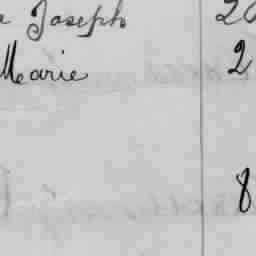 Joseph 20
Marie 2
8